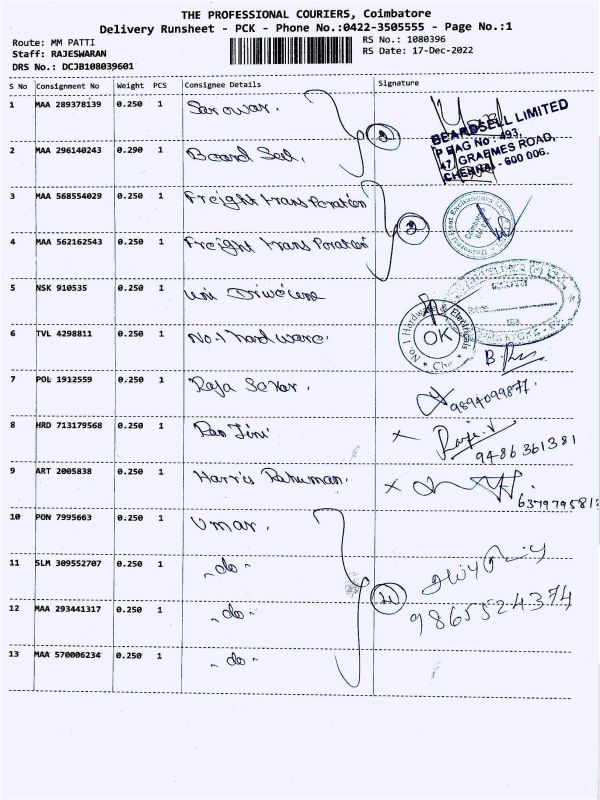 THE PROFESSIONAL COURIERS, Coimbatore
Delivery Runsheet - PCK - Phone No.:0422-3505555 - Page No.:1
Route: MM PATTI
RS No.: 1080396
Staff: RAJESWARAN
RS Date: 17-Dec-2022
DRS No.: DCJB108039601
S No Consignment No Weight PCS Consignee Details Signature
1 MAA 289378139 0.250 1 Sarowar.
BEARDSELL LIMITED
P BAG No : 493,
47, GRAEMES ROAD,
CHENNAI - 600 006.
2 MAA 296140243 0.290 1 Beard Sell.
3 MAA 568554029 0.250 1 Freight trans Poration
4 MAA 562162543 0.250 1 Freight trans Poration
5 NSK 910535 0.250 1 Uni Driveline
6 TVL 4298811 0.250 1 No.1 hardware.
No. 1 Hardware & Electricals
OK
7 POL 1912559 0.250 1 Raja Sekar.
9894099877.
8 HRD 713179568 0.250 1
9486361381
9 ART 2005838 0.250 1 Harris Rahuman.
10 PON 7995663 0.250 1 Umar.
11 SLM 309552707 0.250 1 - do -
12 MAA 293441317 0.250 1 - do -
9865524374
13 MAA 570006234 0.250 1 - do -